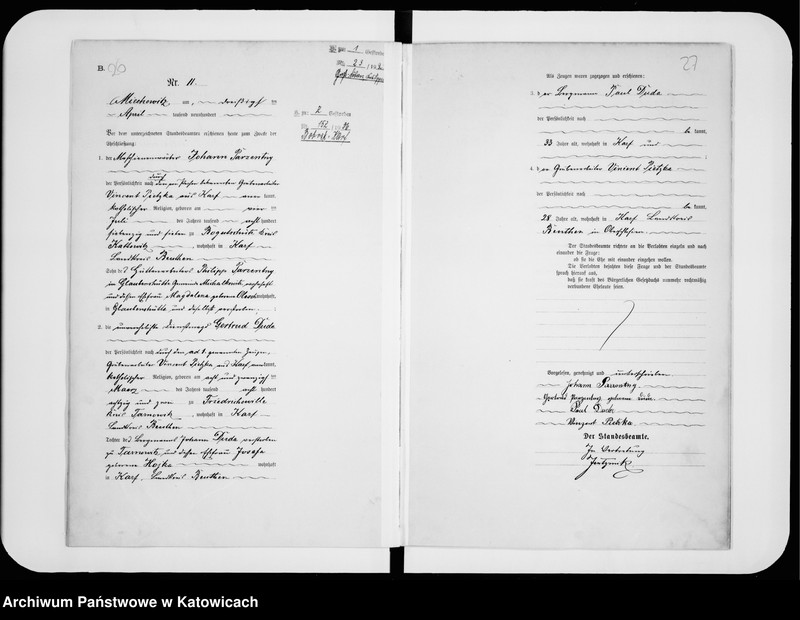 B.
Nr. 11.
Miechowitz, am dreißigsten
April tausend neunhundert
Vor dem unterzeichneten Standesbeamten erschienen heute zum Zweck der
Eheschließung:
1. der Maschinenwärter Johann Parzentny
der Persönlichkeit nach durch den
Vincent Pietzka aus Karf
katholischer Religion, geboren am vier
Juli des Jahres tausend acht hundert
siebenzig und sieben zu Bogutschütz Kreis
Kattowitz, wohnhaft in Karf
Landkreis Beuthen
Sohn des Hüttenarbeiters Philipp Parzentny
in
und dessen Ehefrau Magdalena geborene wohnhaft
in und daselbst verstorben
2. die unverehelichte Dienstmagd Gertrud Duda
der Persönlichkeit nach durch den ad 1 genannten Zeugen,
Grubenarbeiter Vincent Pietzka aus Karf, kannt,
katholischer Religion, geboren am acht und zwanzigsten
März des Jahres tausend acht hundert
achtzig und zwei zu Friedrichswille
Kreis Tarnowitz, wohnhaft in Karf
Landkreis Beuthen
Tochter des Bergmanns Johann Duda verstorben
zu Tarnowitz und dessen Ehefrau Josefa
geborene Hojka wohnhaft
in Karf, Landkreis Beuthen
27
Als Zeugen waren zugezogen und erschienen:
3. der Bergmann Paul Duda
der Persönlichkeit nach
be kannt,
33 Jahre alt, wohnhaft in Karf und
4. der Grubenarbeiter Vincent Pietzka
der Persönlichkeit nach
be kannt,
28 Jahre alt, wohnhaft in Karf Landkreis
Beuthen in Oberschlesien.
Der Standesbeamte richtete an die Verlobten einzeln und nach
einander die Frage:
ob sie die Ehe mit einander eingehen wollen.
Die Verlobten bejahten diese Frage und der Standesbeamte
sprach hierauf aus,
daß sie kraft des Bürgerlichen Gesetzbuchs nunmehr rechtmäßig
verbundene Eheleute seien.
Vorgelesen, genehmigt und unterschrieben
Johann
Gertrud geborene Duda
Paul Duda
Vinzent
Der Standesbeamte.
In Vertretung
Archiwum Państwowe w Katowicach